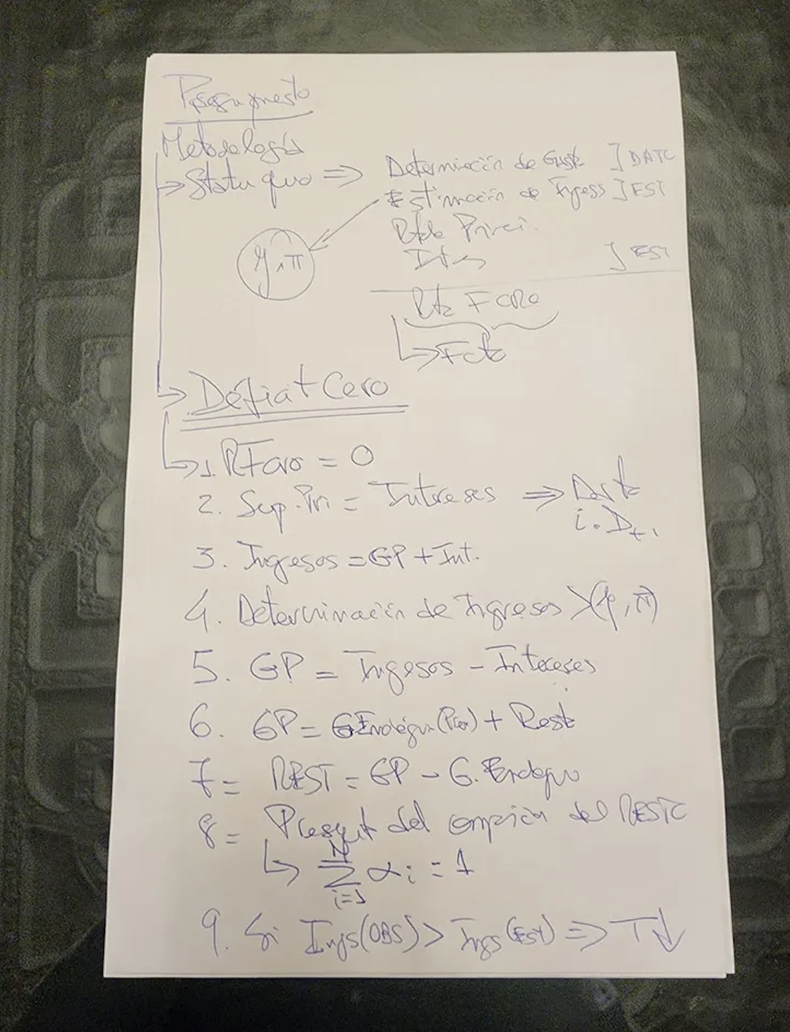 Presupuesto
Metodología
→ Statu quo ⇒ Determinación de Gasto ] DATO
Estimación de Ingresos ] EST
Rtdo Primi.
Int ] EST
y, π
Rtdo FCRO
↳ Fto
→ Déficit Cero
↳ 1. RFcro = 0
2. Sup. Pri = Intereses ⇒ Dato
i. Dt.
3. Ingresos = GP + Int.
4. Determinación de Ingresos (y, π)
5. GP = Ingresos - Intereses
6. GP = G Endógeno () + Resto
7 = REST = GP - G. Endógeno
8 = del RESTO
↳ N Σ i=1 αi = 1
9. Si Ings(OBS) > Ings(EST) ⇒ T↓